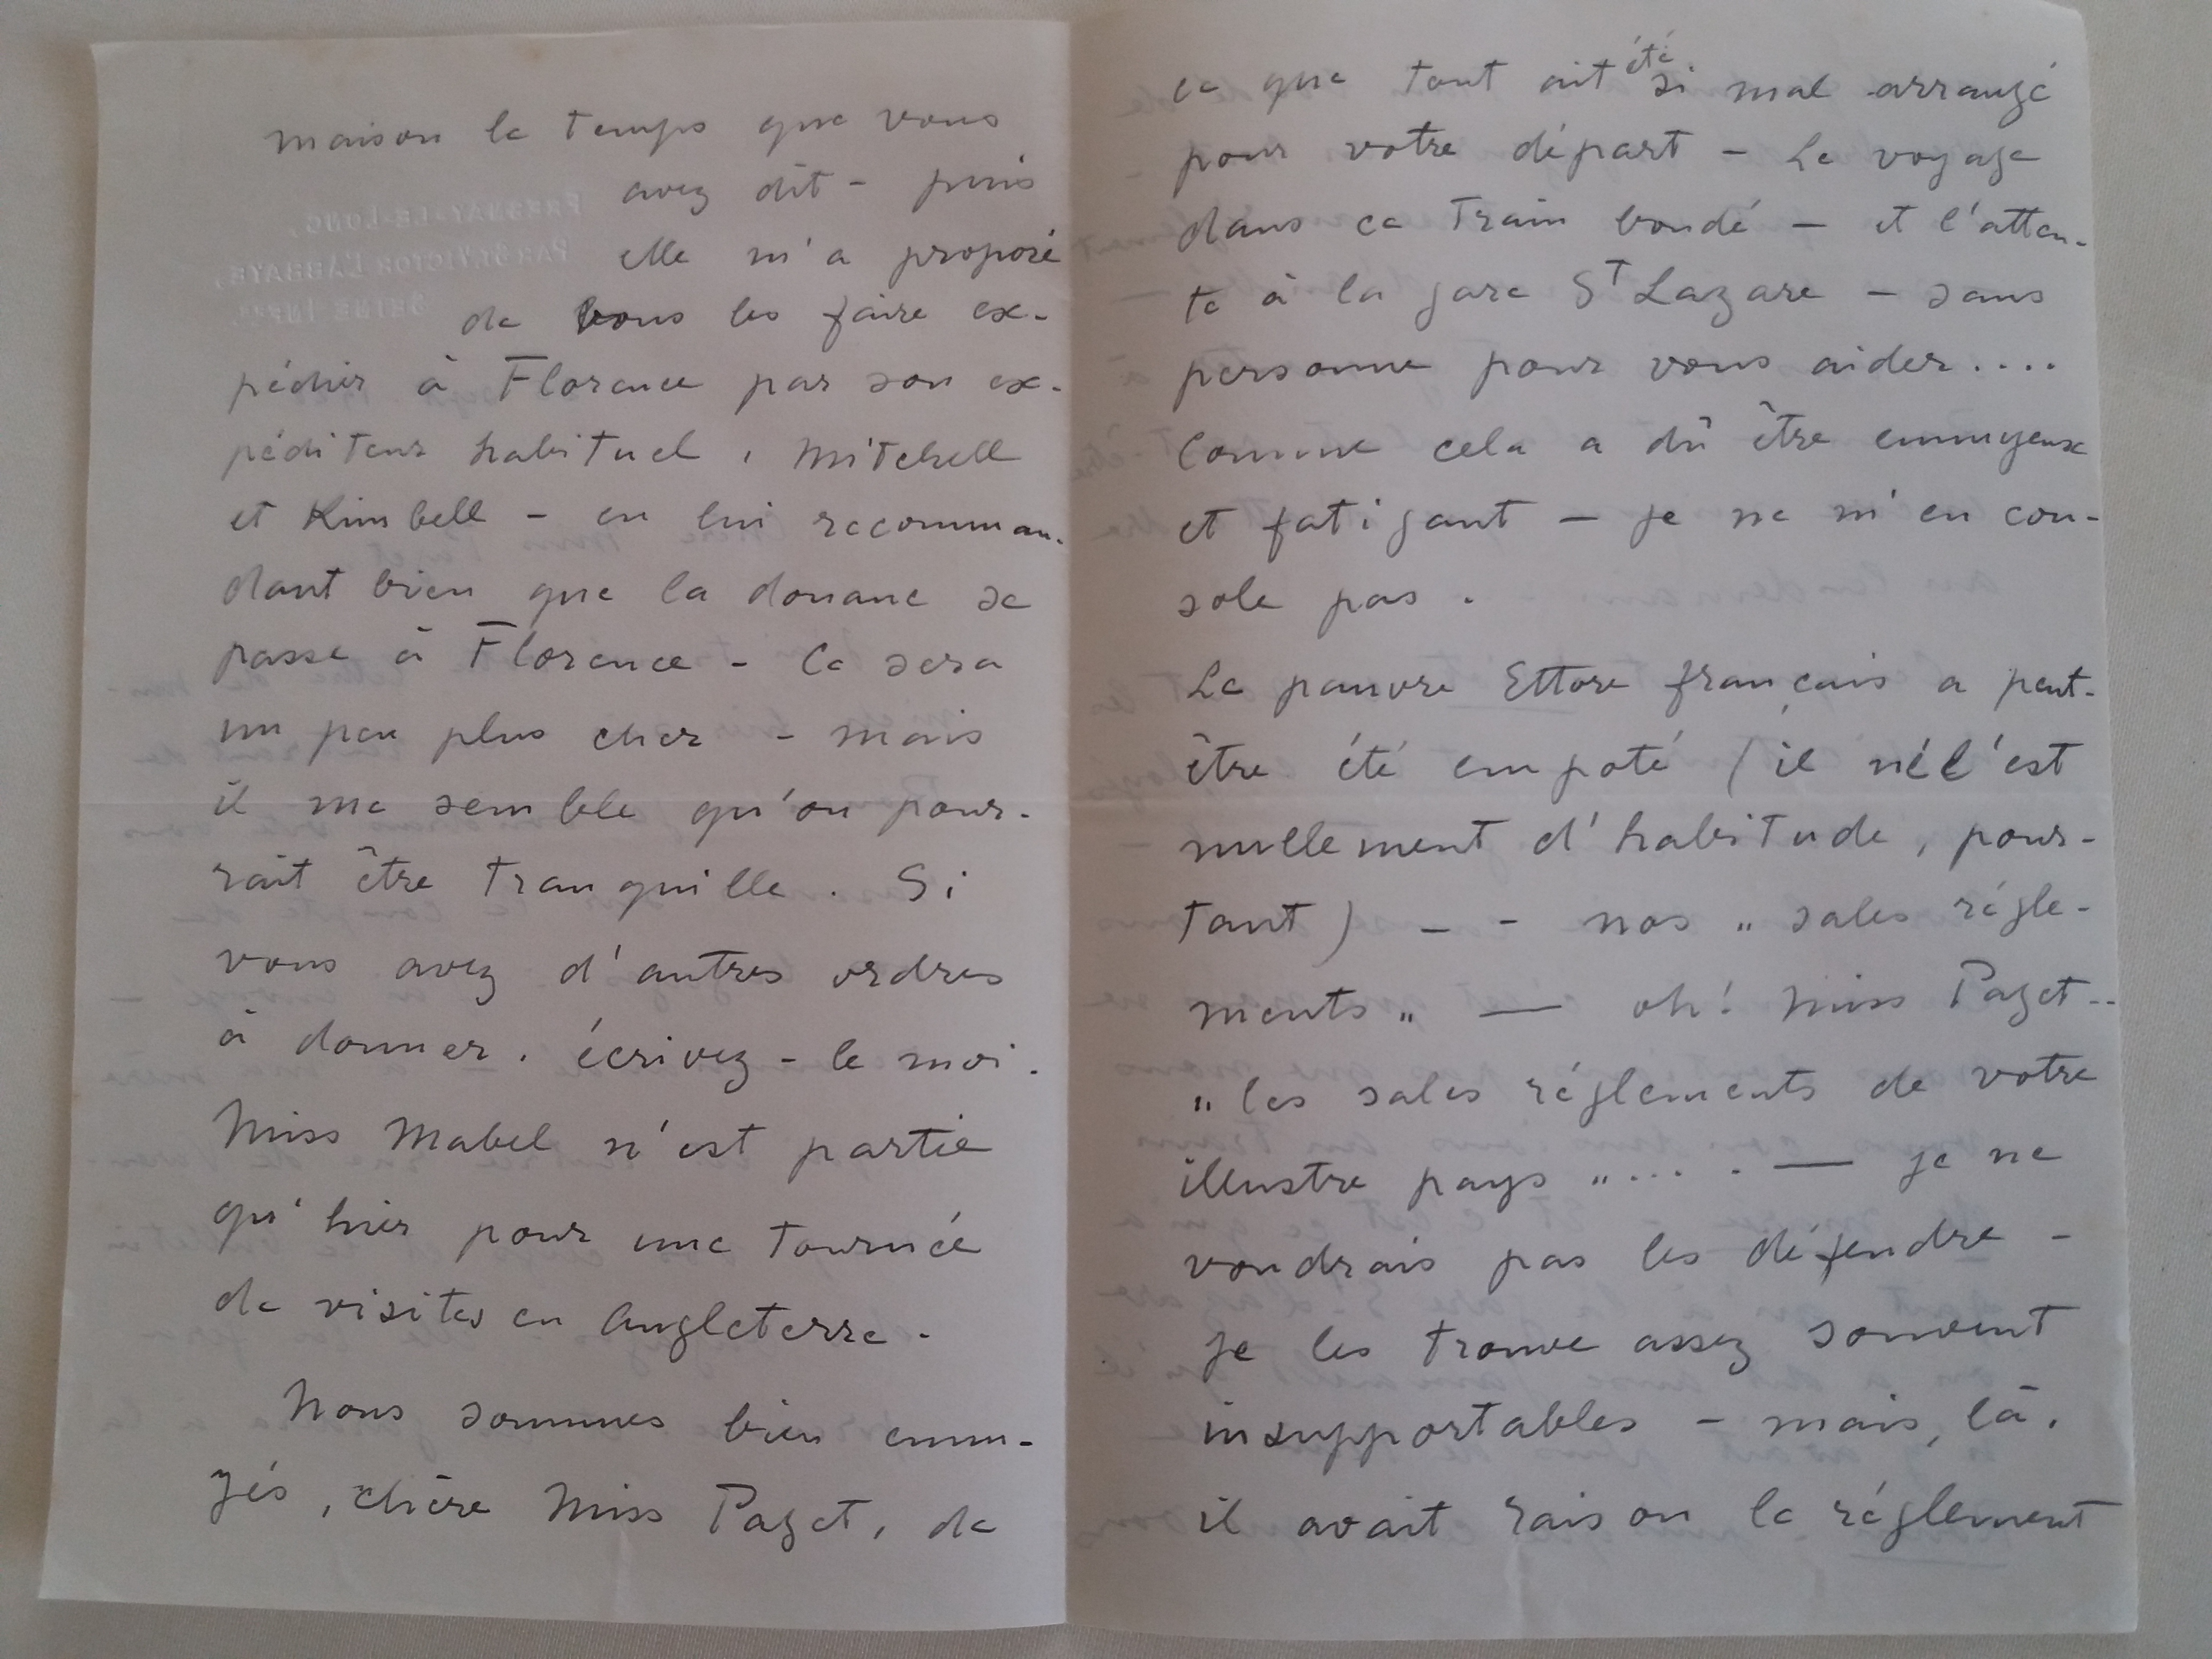 maison le temps que vous
avez dit - puis
elle m'a proposé
de vous les faire ex-
pédier à Florence par son ex-
péditeur habituel, Mitchell
et Kimbell - en lui recomman-
dant bien que la douane se
passe à Florence - Ce sera
un peu plus cher - mais
il me semble qu'on pour-
rait être tranquille. Si
vous avez d'autres ordres
à donner, écrivez-le moi.
Miss Mabel n'est partie
qu'hier pour une tournée
de visites en Angleterre.
Nous sommes bien ennu-
yés, chère Miss Paget, de
ce que tout ait été si mal arrangé
pour votre départ - Le voyage
dans ce train bondé - et l'atten-
te à la gare St Lazare - sans
personne pour vous aider....
Comme cela a dû être ennuyeux
et fatigant - je ne m'en con-
sole pas.
Le pauvre Ettore français a peut-
être été empoté (il ne l'est
nullement d'habitude, pour-
tant) - - nos „ sales régle-
ments „ — oh! Miss Paget..
„ les sales réglements de votre
illustre pays „.... — je ne
voudrais pas les défendre -
je les trouve assez souvent
insupportables - mais, là,
il avait raison le réglement
FRESNAY-LE-LONG,
PAR ST VICTOR L'ABBAYE,
SEINE INFRE.